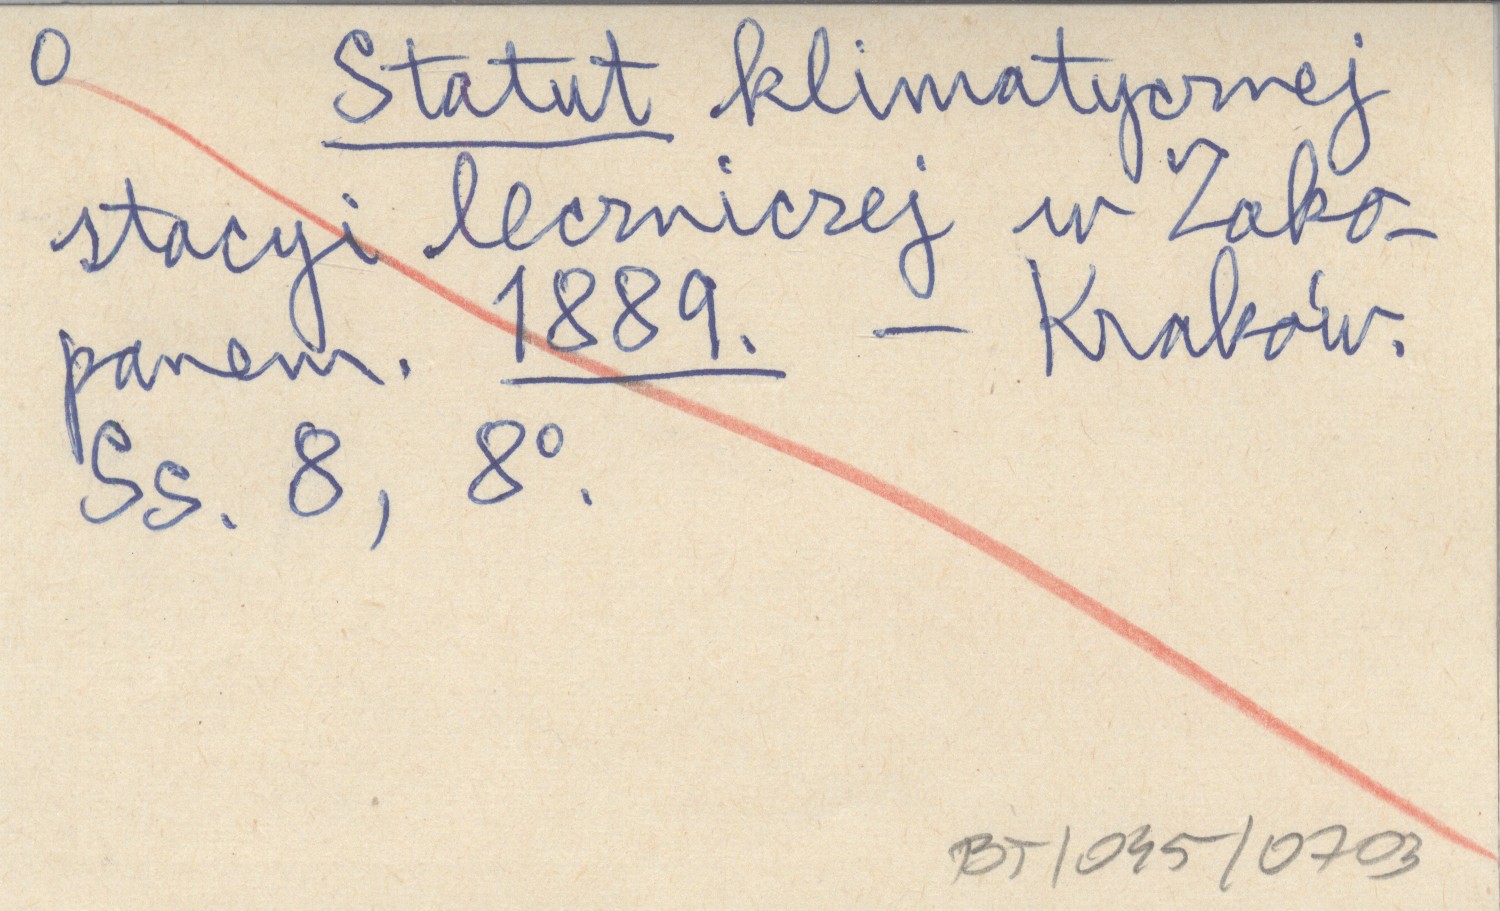 0 Statut klimatycznej
stacyi leczniczej w Zako-
panem. 1889. — Kraków.
Ss. 8, 8°.
BT/045/0703